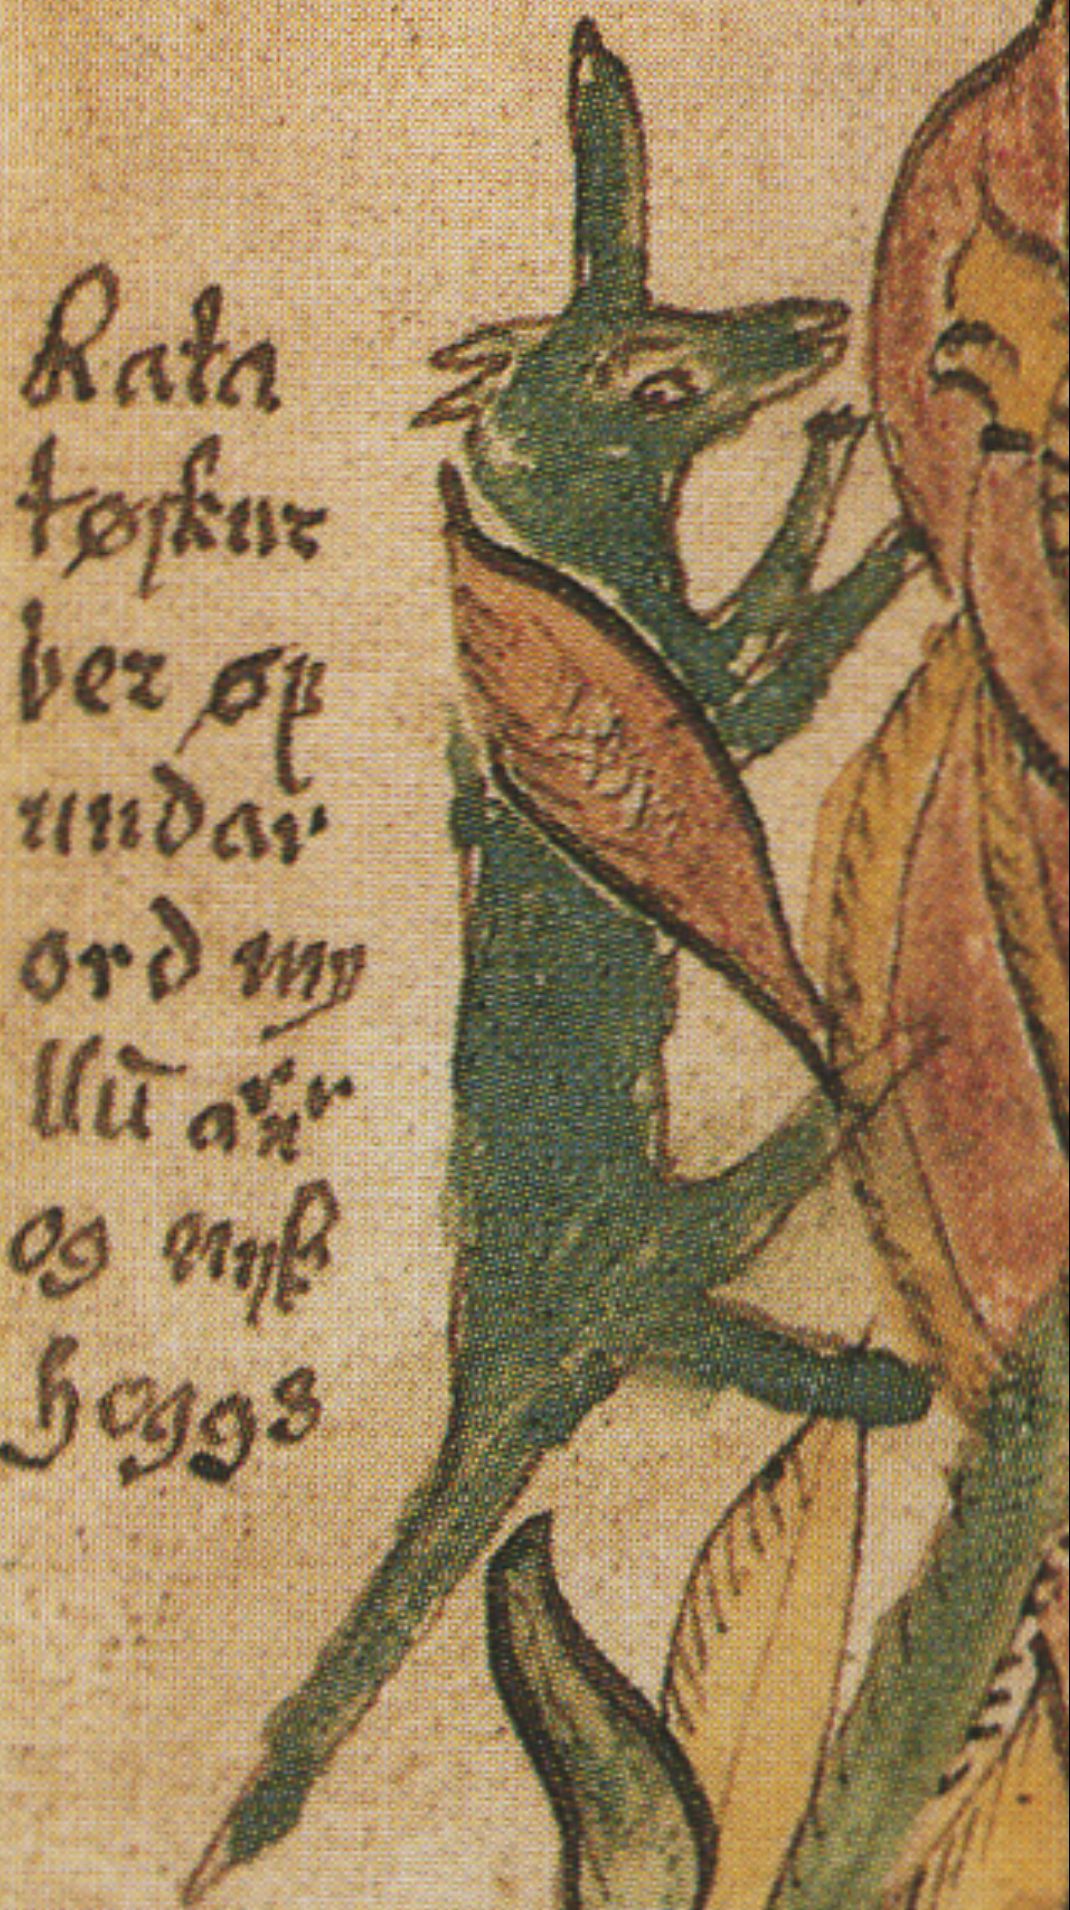 Rata
tøskur
ber øf
undar
ord my
llū arnr
og nyh
hoggs